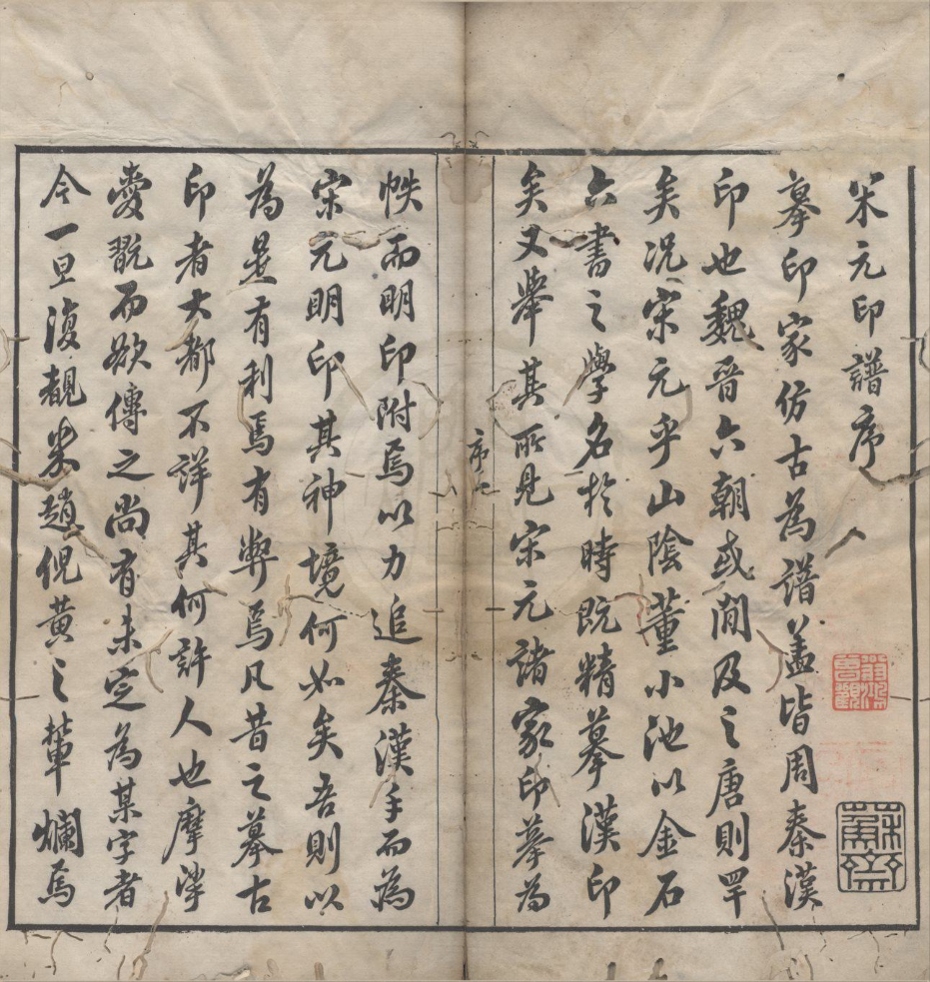 宋元印譜序
摹印家仿古為譜盖皆周秦漢
印也魏晉六朝或間及之唐則罕
矣况宋元乎山陰董小池以金石
六書之學名於時既精摹漢印
矣又舉其所見宋元諸家印摹為
序
帙而明印附焉以力追秦漢手而為
宋元明印其神境何如矣吾則以
為是有利焉有弊焉凡昔之摹古
印者大都不詳其何許人也摩挲
愛翫而欲傳之尚有未定為某字者
今一旦復覩米趙倪黃之輩爛焉
蘇齋